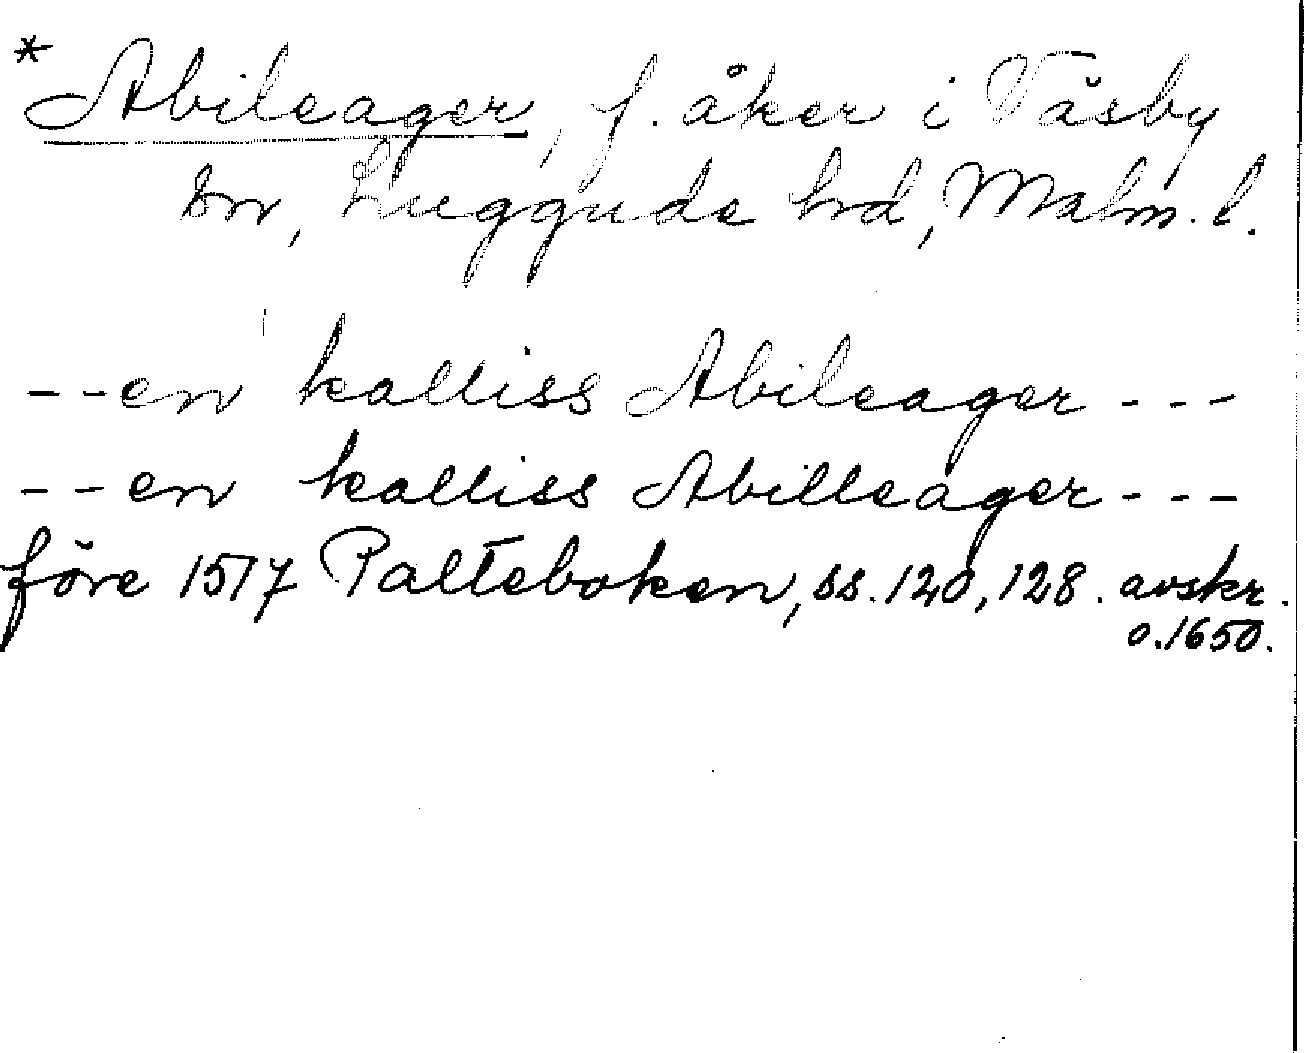 * Abileager, f. åker i Väsby
sn, Luggude hd, Malm. l.
--en kalliss Abileager---
--en kalliss Abilleager---
före 1517 Palteboken, ss. 120, 128. avskr.
o. 1650.